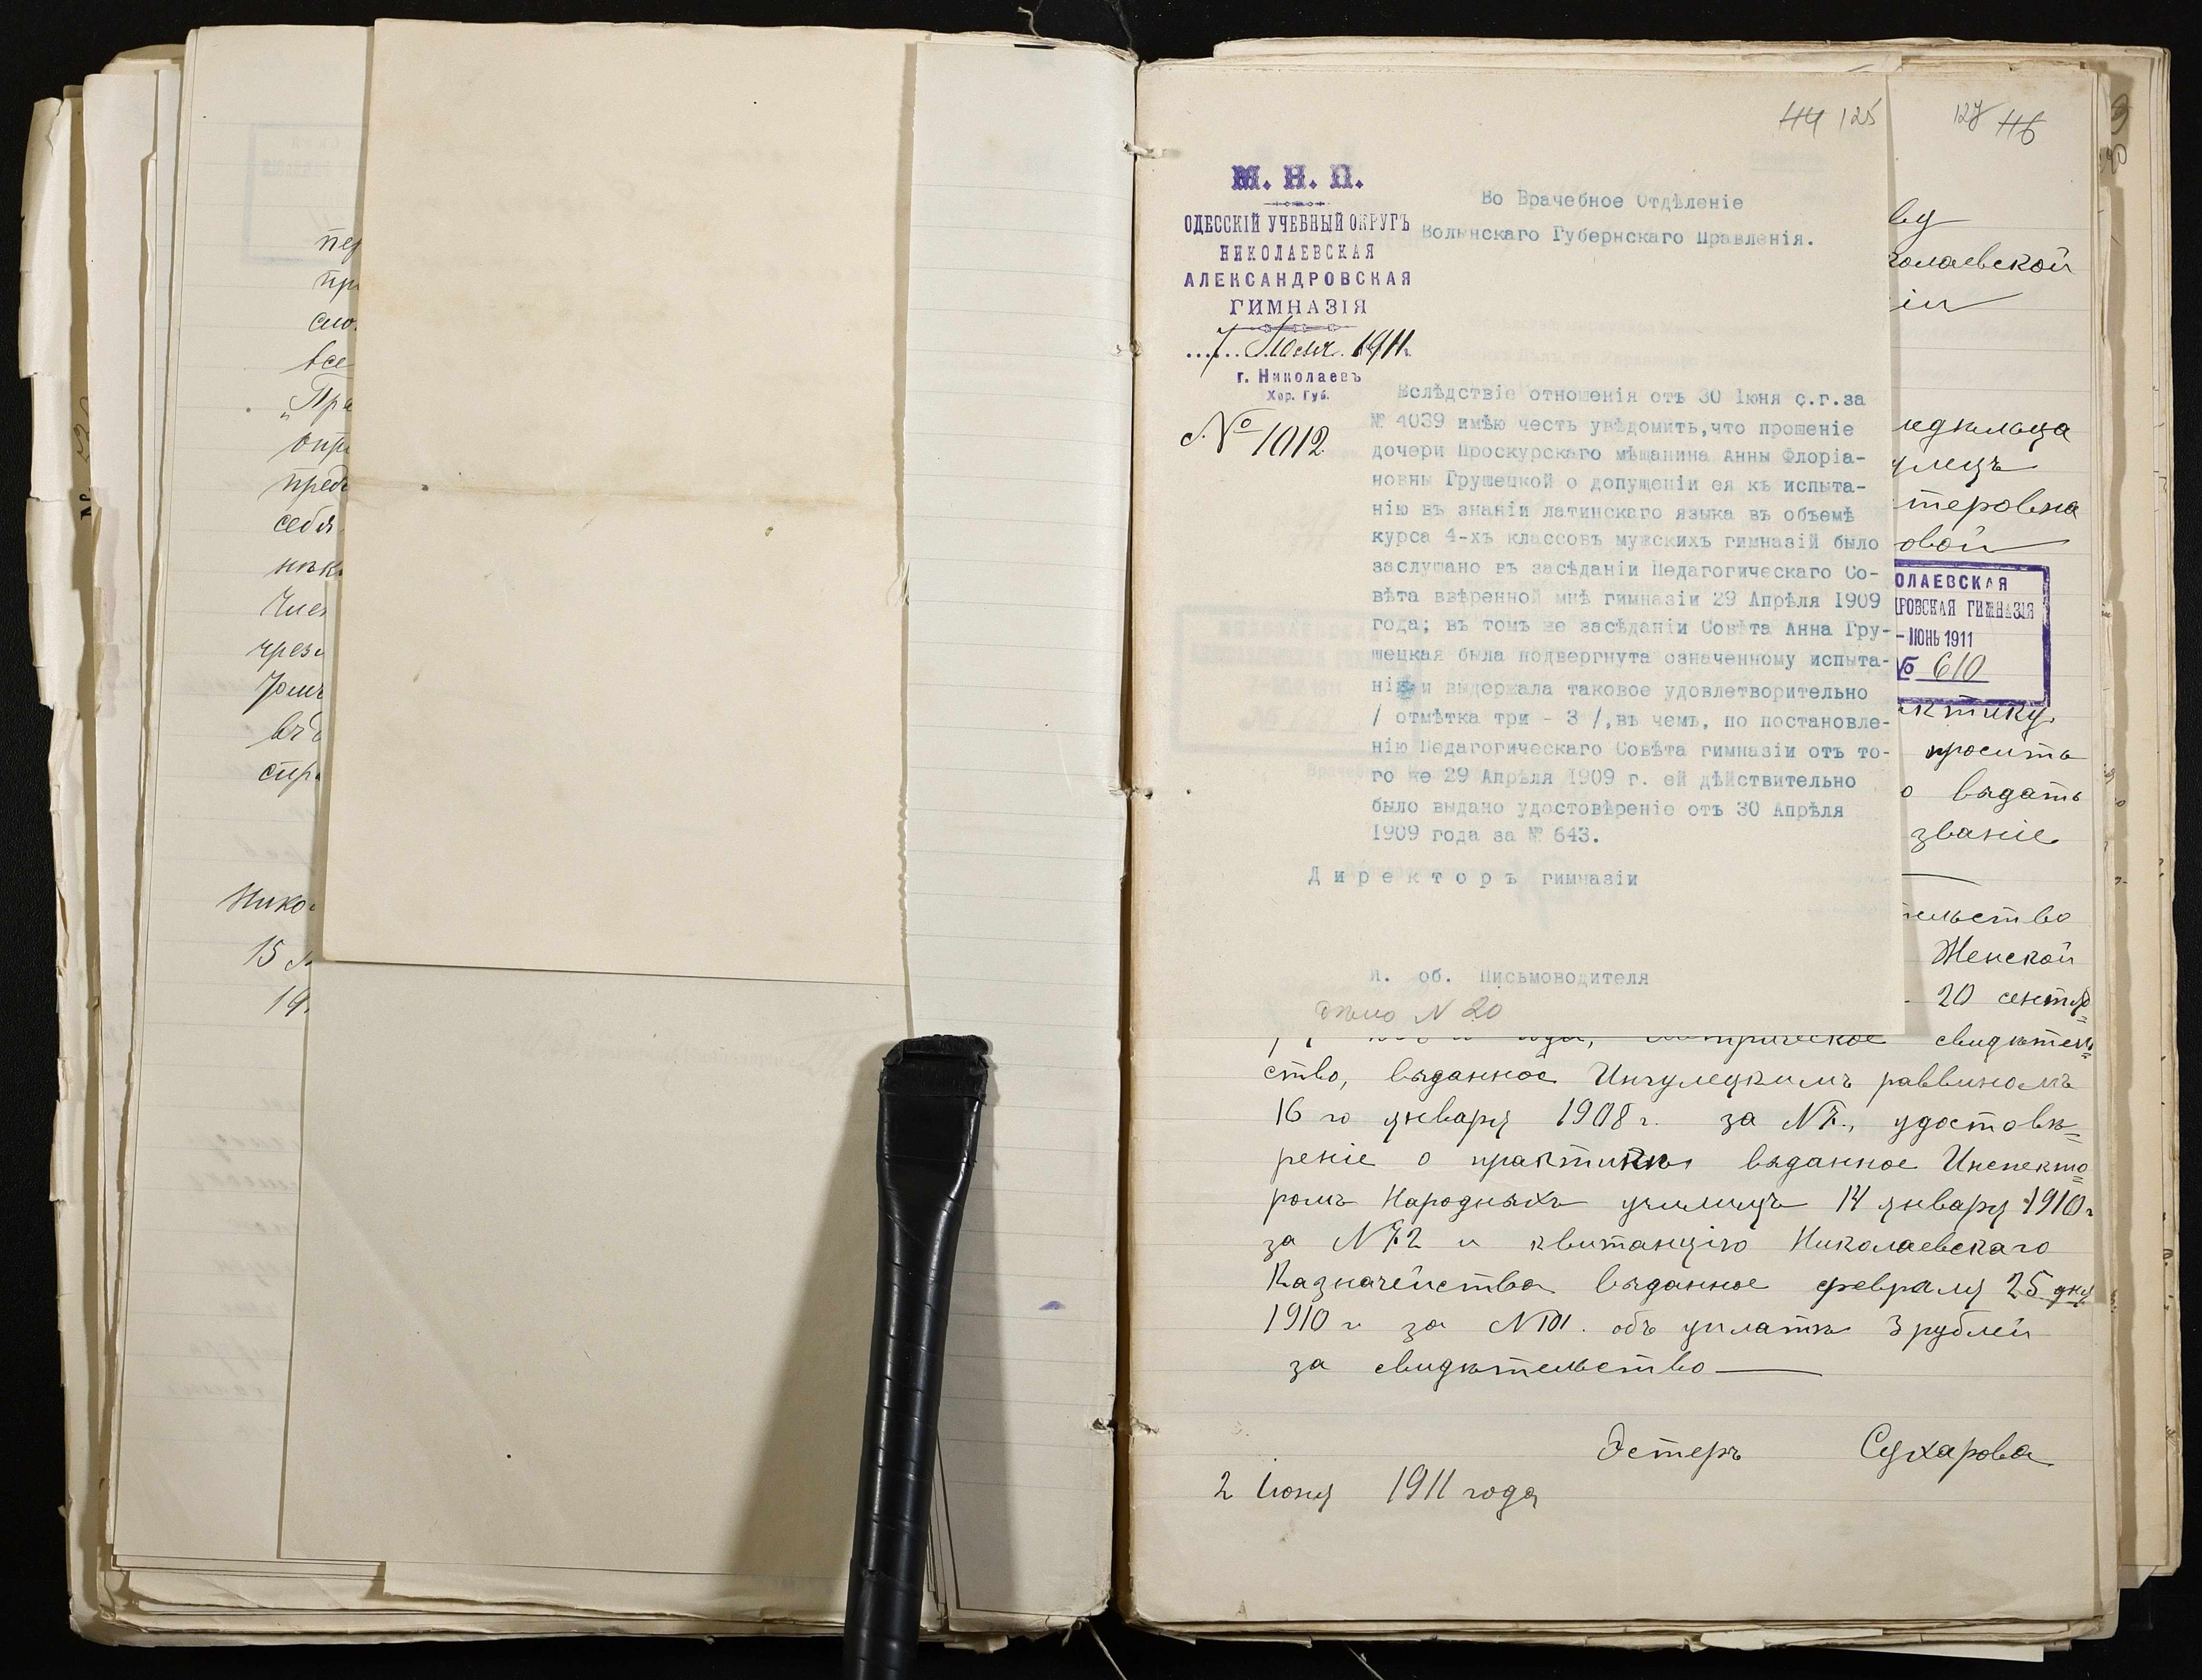 пер
пр
сло
все
„Пра
опр
пред
себя
Член
чрез
стр
Нико
15
19
114 125
М. Н. П.
ОДЕССКІЙ УЧЕБНЫЙ ОКРУГЪ
НИКОЛАЕВСКАЯ
АЛЕКСАНДРОВСКАЯ
ГИМНАЗІЯ
7 Іюля 1911 г.
г. Николаевъ
Хер. Губ.
№ 1012
Во Врачебное Отдѣленіе
Волынскаго Губернскаго Правленія.
Вслѣдствіе отношенія отъ 30 Іюня с.г.за
№ 4039 имѣю честь увѣдомить,что прошеніе
дочери Проскурскаго мѣщанина Анны Флоріа-
новны Грушецкой о допущеніи ея къ испыта-
нію въ знаніи латинскаго языка въ объемѣ
курса 4-хъ классовъ мужскихъ гимназій было
заслушано въ засѣданіи Педагогическаго Со-
вѣта ввѣренной мнѣ гимназіи 29 Апрѣля 1909
года; въ томъ же засѣданіи Совѣта Анна Гру-
шецкая была подвергнута означенному испыта-
нію и выдержала таковое удовлетворительно
/ отмѣтка три - 3 /,въ чемъ, по постановле-
нію Педагогическаго Совѣта гимназіи отъ то-
го же 29 Апрѣля 1909 г. ей дѣйствительно
было выдано удостовѣреніе отъ 30 Апрѣля
1909 года за № 643.
Директоръ гимназіи
И. об. Письмоводителя
Дѣло N 20
127 116
ву
колаевской
іи
едѣльца
улецъ
теровна
овой
ОЛАЕВСКАЯ
РОВСКАЯ ГИМНАЗІЯ
- ІЮНЬ 1911
№ 610
актику
просить
о выдать
званіе
тельство
Женской
20 сентяб=
метрическое свидѣтель=
ство, выданное Ингулецкимъ раввиномъ
16 го января 1908 г. за N 7., удостовѣ=
реніе о практикѣ выданное Инспекто=
ромъ Народныхъ училищъ 14 января 1910 г
за N 72 и квитанцію Николаевскаго
Казначейства выданное февраля 25 дня
1910 г за N 101. объ уплатѣ 3 рублей
за свидѣтельство
Эстеръ Сухарова
2 Іюня 1911 года